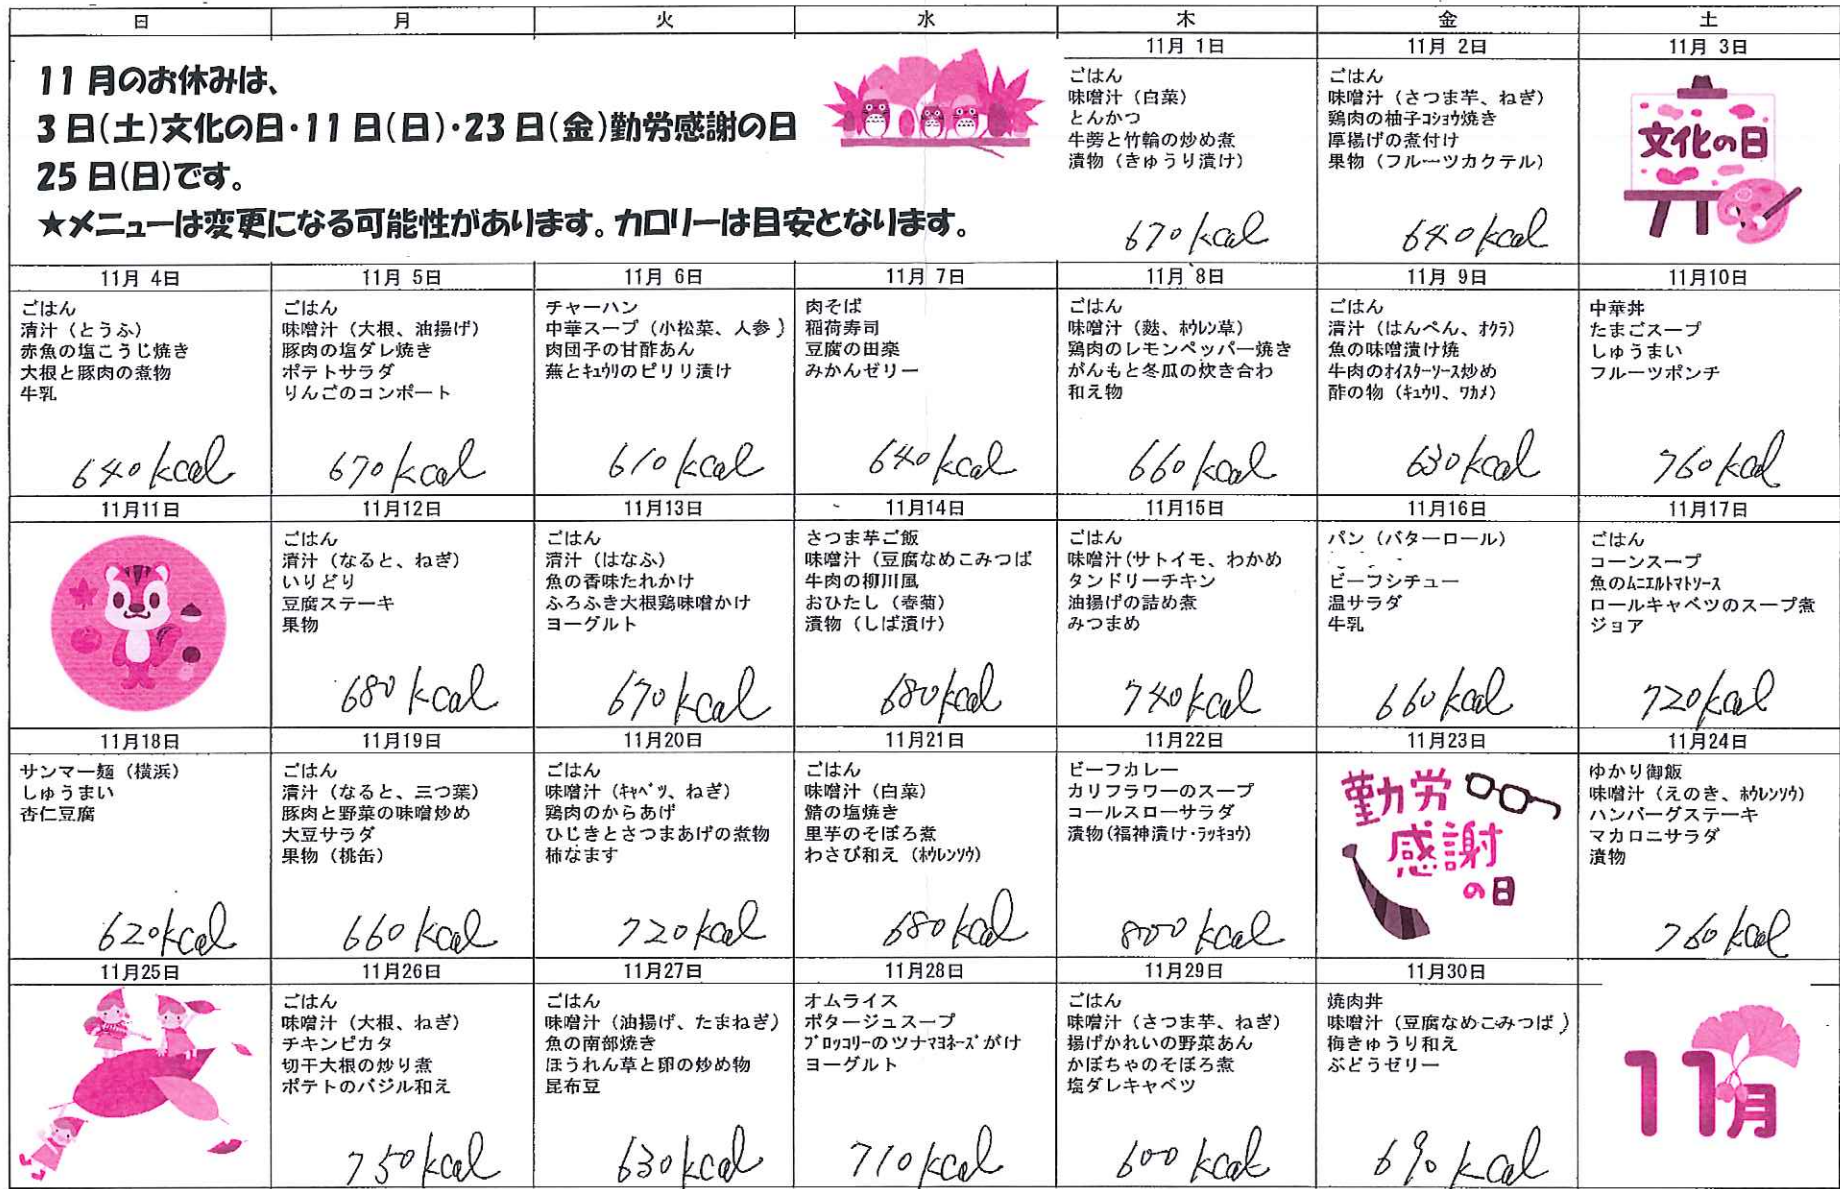 日 月 火 水 木 金 土
11月のお休みは、
3日(土)文化の日・11日(日)・23日(金)勤労感謝の日
25日(日)です。
★メニューは変更になる可能性があります。カロリーは目安となります。
11月 1日
ごはん
味噌汁（白菜）
とんかつ
牛蒡と竹輪の炒め煮
漬物（きゅうり漬け）
670kcal
11月 2日
ごはん
味噌汁（さつま芋、ねぎ）
鶏肉の柚子ｺｼｮｳ焼き
厚揚げの煮付け
果物（フルーツカクテル）
640kcal
11月 3日
文化の日
11月 4日
ごはん
清汁（とうふ）
赤魚の塩こうじ焼き
大根と豚肉の煮物
牛乳
640kcal
11月 5日
ごはん
味噌汁（大根、油揚げ）
豚肉の塩ダレ焼き
ポテトサラダ
りんごのコンポート
670kcal
11月 6日
チャーハン
中華スープ（小松菜、人参）
肉団子の甘酢あん
蕪とｷｭｳﾘのピリリ漬け
610kcal
11月 7日
肉そば
稲荷寿司
豆腐の田楽
みかんゼリー
640kcal
11月 8日
ごはん
味噌汁（麩、ﾎｳﾚﾝ草）
鶏肉のレモンペッパー焼き
がんもと冬瓜の炊き合わ
和え物
660kcal
11月 9日
ごはん
清汁（はんぺん、ｵｸﾗ）
魚の味噌漬け焼
牛肉のｵｲｽﾀｰｿｰｽ炒め
酢の物（ｷｭｳﾘ、ﾜｶﾒ）
630kcal
11月10日
中華丼
たまごスープ
しゅうまい
フルーツポンチ
760kcal
11月11日
11月12日
ごはん
清汁（なると、ねぎ）
いりどり
豆腐ステーキ
果物
680kcal
11月13日
ごはん
清汁（はなふ）
魚の香味たれかけ
ふろふき大根鶏味噌かけ
ヨーグルト
670kcal
11月14日
さつま芋ご飯
味噌汁（豆腐なめこみつば
牛肉の柳川風
おひたし（春菊）
漬物（しば漬け）
680kcal
11月15日
ごはん
味噌汁(サトイモ、わかめ
タンドリーチキン
油揚げの詰め煮
みつまめ
740kcal
11月16日
パン（バターロール）
ビーフシチュー
温サラダ
牛乳
660kcal
11月17日
ごはん
コーンスープ
魚のﾑﾆｴﾙﾄﾏﾄｿｰｽ
ロールキャベツのスープ煮
ジョア
720kcal
11月18日
サンマー麺（横浜）
しゅうまい
杏仁豆腐
620kcal
11月19日
ごはん
清汁（なると、三つ葉）
豚肉と野菜の味噌炒め
大豆サラダ
果物（桃缶）
660kcal
11月20日
ごはん
味噌汁（ｷｬﾍﾞﾂ、ねぎ）
鶏肉のからあげ
ひじきとさつまあげの煮物
柿なます
720kcal
11月21日
ごはん
味噌汁（白菜）
鯖の塩焼き
里芋のそぼろ煮
わさび和え（ﾎｳﾚﾝｿｳ）
680kcal
11月22日
ビーフカレー
カリフラワーのスープ
コールスローサラダ
漬物(福神漬け・ﾗｯｷｮｳ)
800kcal
11月23日
勤労
感謝
の日
11月24日
ゆかり御飯
味噌汁（えのき、ﾎｳﾚﾝｿｳ）
ハンバーグステーキ
マカロニサラダ
漬物
760kcal
11月25日
11月26日
ごはん
味噌汁（大根、ねぎ）
チキンピカタ
切干大根の炒り煮
ポテトのバジル和え
750kcal
11月27日
ごはん
味噌汁（油揚げ、たまねぎ）
魚の南部焼き
ほうれん草と卵の炒め物
昆布豆
630kcal
11月28日
オムライス
ポタージュスープ
ﾌﾞﾛｯｺﾘｰのツナﾏﾖﾈｰｽﾞがけ
ヨーグルト
710kcal
11月29日
ごはん
味噌汁（さつま芋、ねぎ）
揚げかれいの野菜あん
かぼちゃのそぼろ煮
塩ダレキャベツ
600kcal
11月30日
焼肉丼
味噌汁（豆腐なめこみつば）
梅きゅうり和え
ぶどうゼリー
690kcal
11月